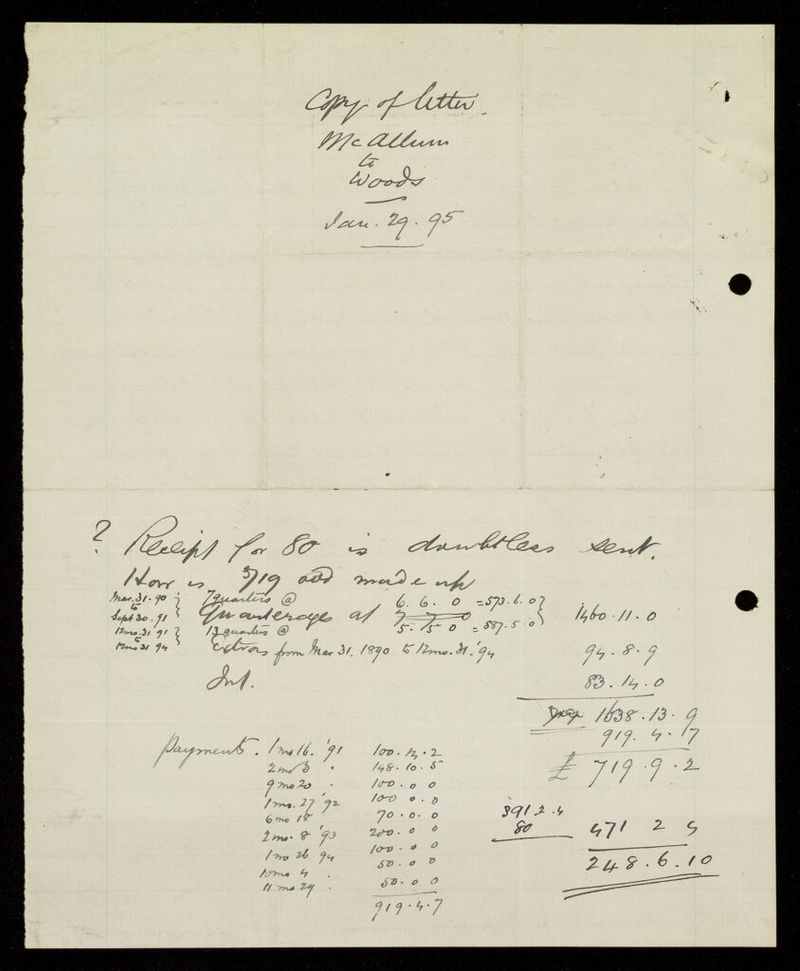 Copy of letter.
McAllum
to
Woods
Jan. 29. 95
? Receipt for 80 is doubtless sent.
How is 719 odd made up
Mar. 31. 90 to Sept 30. 91 } 7 quarters @ 6. 6. 0 = 573. 6. 0 }
Quarterages at 1460. 11. 0
12mo. 31 91 to 12mo 31 94 } 13 quarters @ 5. 15 0 = 887. 5. 0 }
Extras from Mar 31. 1890 to 12mo. 31. '94 94. 8. 9
Int. 83. 14. 0
1638. 13. 9
919. 4. 7
£ 719. 9. 2
Payments. 1 mo 16. '91 100. 14. 2
2 mo 3 . 148. 10. 5
9 mo 20 . 100. 0 0
1 mo. 27 '92 100 0. 0
6 mo 18 70. 0. 0
2 mo. 8 '93 200. 0 0
1 mo 26 94 100. 0 0
10 mo 4 . 50. 0 0
11 mo 29 . 50. 0 0
919. 4. 7
391 2. 4
80 471 2 4
248. 6. 10